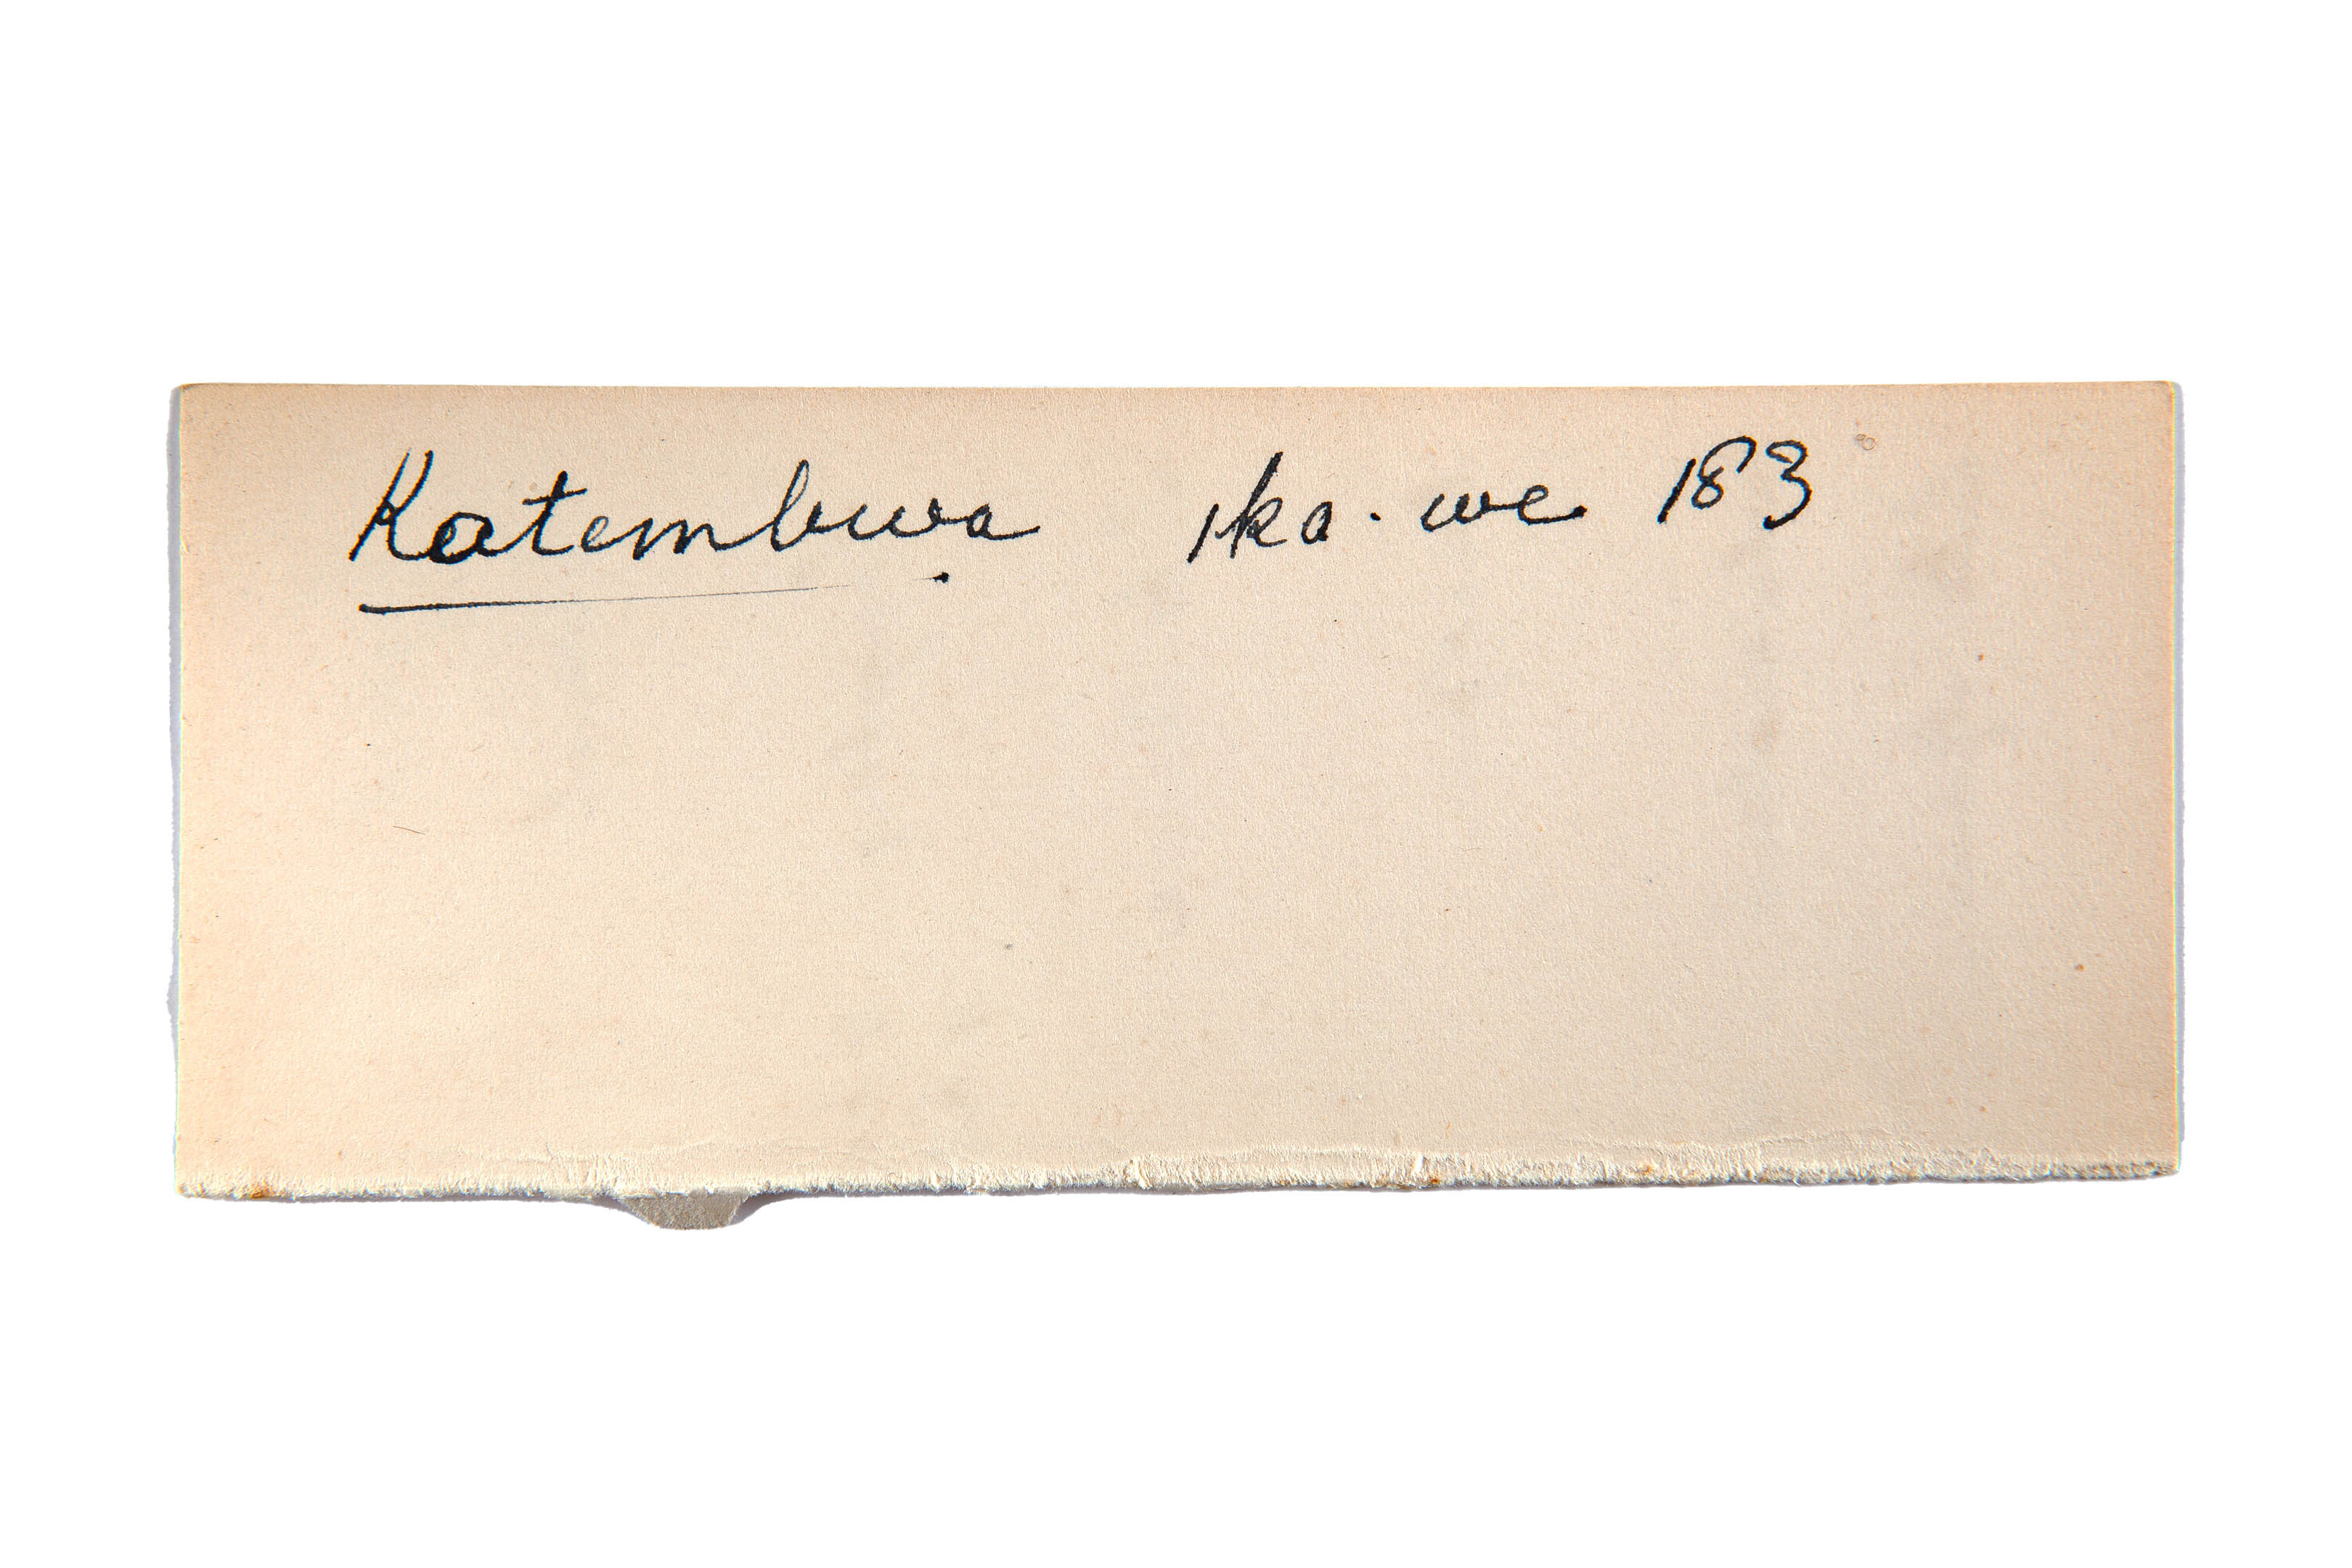 Katembwa ika-we 183